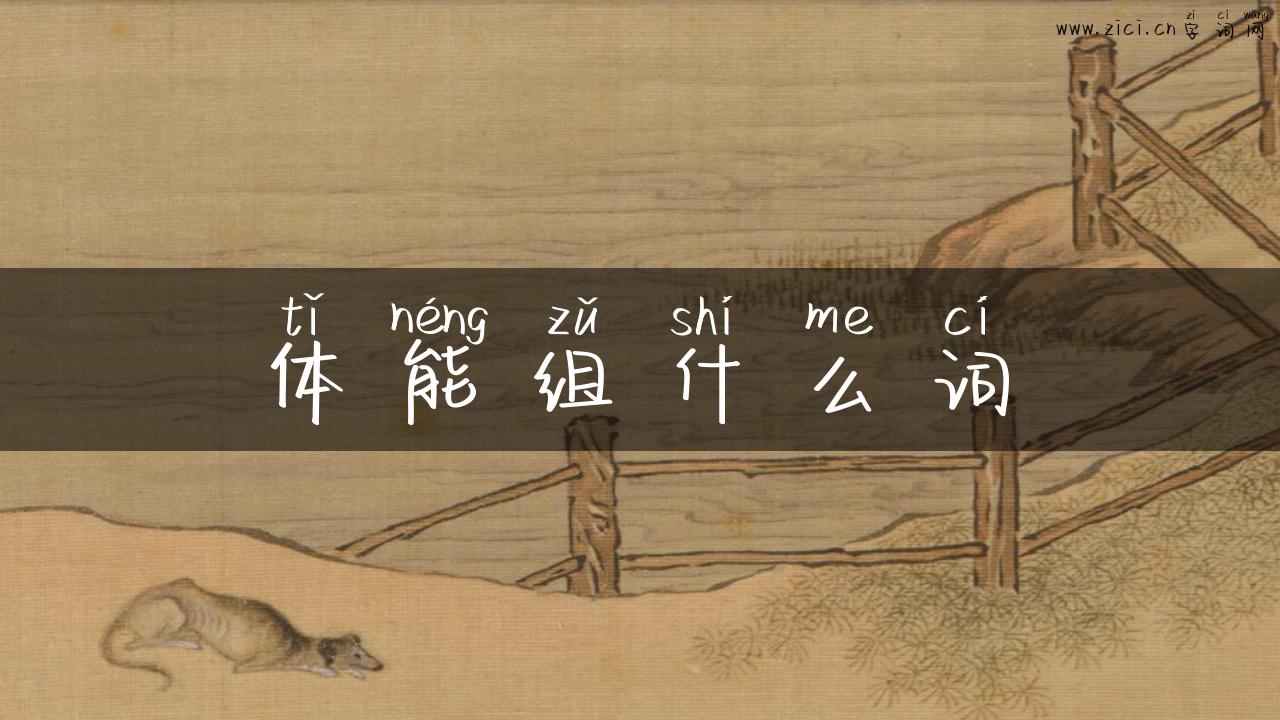 zi ci wang
www.zici.cn 字词网
tǐ néng zǔ shí me cí
体能组什么词